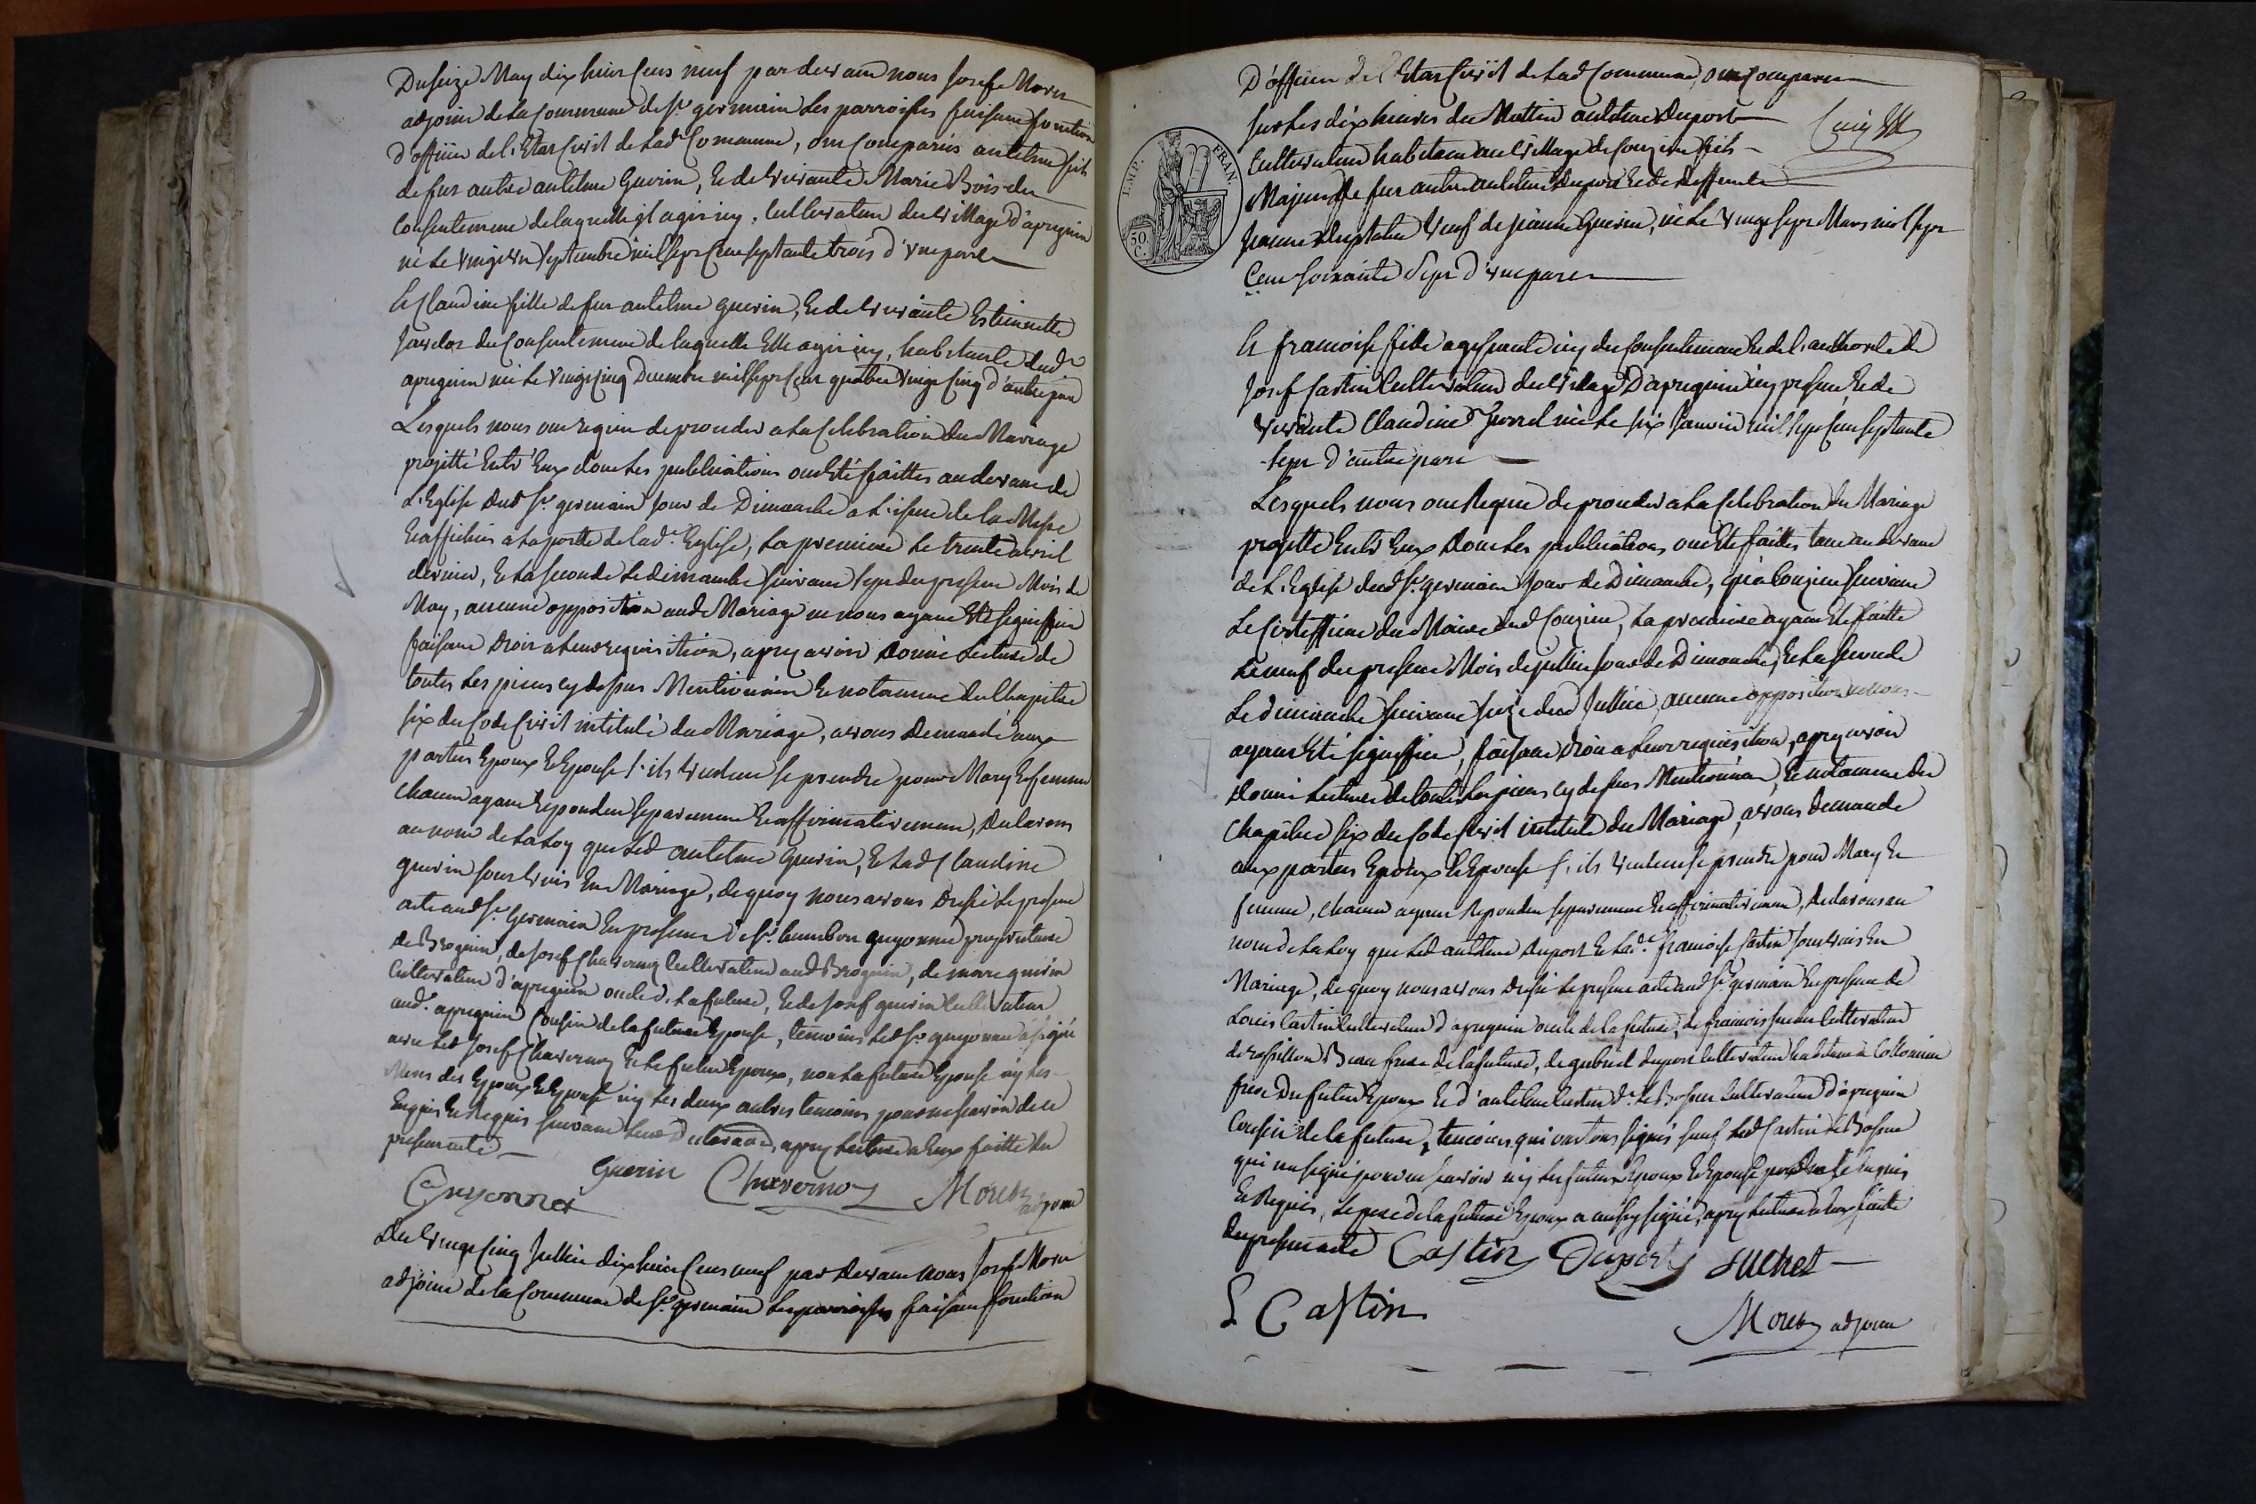 Du seize May dix huit Cens neuf par devant nous Josef Moret
adjoint de la Commune de St germain les parroisses faisant fonction
d'officier de l'Etat Civil de lad Commune, ont comparus antelme fils
de feu autre antelme Guerin, Et de vivante Marie Bois du
Consentement de laquelle il agit icy, Cultivateur du village d'apregnin
né le vingt un Septembre mil sept Cent septante trois d'une part
Et Claudine fille de feu antelme guerin, Et de vivante Estiennette
du Consentement de laquelle Elle agit icy, habitante dud
apregnin née le vingt Cinq mil sept Cent quatre vingt Cinq d'autre part
Lesquels nous ont requis de proceder a la Celebration du Mariage
projetté Entr'Eux dont les publications ont Eté faittes audevant de
L'Eglise dud St germain jour de Dimanche a l'issue de la Messe
Et affichées a la porte de lad Eglise, la premiere le trente avril
dernier, Et la seconde le dimanche suivant sept du present Mois de
May, aucune opposition aud Mariage ne nous ayant Eté signiffiée
faisant droit a leur requisition, apres avoir donné Lecture de
toutes les pieces cy dessus Mentionnées Et notament du Chapitre
six du Code Civil intitulé du Mariage, avons demandé aux
parties Epoux Et Epouse s'ils veulent se prendre pour Mary Et femme
chacun ayant repondu separement Et affirmativement, declarons
au nom de la Loy que led antelme Guerin, Et lad Claudine
guerin sont unis En Mariage, de quoy nous avons dressé le present
acte aud St Germain En presence de Sr guyonnet proprietaire
de Brognin, de Josef Chavernoz Cultivateur aud Brognin, de marc guerin
Cultivateur d'apregnin oncle de la future, Et de Josef guerin Cultivateur
aud apregnin Cousin de la future Epouse, temoins led Sr guyonnet a signé
avec led Josef Chavernoz Et le futur Epoux, non la future Epouse ny les
Meres des Epoux Et Epouse ny les deux autres temoins pour ne savoir de ce
Enquis Et Requis suivant leur declaration, apres Lecture a Eux faitte du
present acte
Guyonnet guerin Chavernoz Moret adjoint
Du vingt Cinq Juillet dix huit Cens neuf par devant nous Josef Moret
adjoint de la Commune de St germain les parroisses faisant fonction
IMP. FRAN.
50 C.
D'officier de l'Etat Civil de lad Commune, ont comparu
sur les dix heures du Mattin antelme Duport
Cultivateur habitant au village de fils
Majeur de feu autre antelme Duport Et de deffunte
veuf de jeanne Guerin, né le vingt sept Mars mil sept
Cent soixante Sept d'une part
Et francoise fille agissante icy du Consentement Et de l'authorité de
Josef Castin Cultivateur du village D'apregnin icy present, Et de
vivante Claudine née le six Janvier mil sept Cent septante
sept d'autre part
Lesquels nous ont Requis de proceder a la Celebration du Mariage
projetté Entr'Eux dont les publications ont Eté faittes tant audevant
de L'Eglise dud St germain jour de Dimanche, suivant
Le Certifficat du Maire dud la premiere ayant Eté faitte
le neuf du present Mois de juillet jour de Dimanche, Et la seconde
Le dimanche suivant seize dud Juillet, aucune opposition ne nous
ayant Eté signiffiée, faisant droit a leur requisition, apres avoir
donné Lecture de toutes les pieces cy dessus Mentionnées, Et notament du
Chapitre six du Code Civil intitulé du Mariage, avons demandé
aux parties Epoux Et Epouse s'ils veulent se prendre pour Mary Et
femme, chacun ayant Repondu separement Et affirmativement, declarons au
nom de la Loy que led antelme duport Et lad francoise Castin sont unis En
Mariage, de quoy nous avons dressé le present acte aud St germain En presence de
Louis Castin Cultivateur d'apregnin oncle de la future, de francois Suchet Cultivateur
de rossillon Beau frere de la future, de gabriel duport Cultivateur habitant a
frere Du futur Epoux Et d'antelme Castin Cultivateur d'apregnin
Cousin de la future, temoins qui ont tous signés sauf led Castin
qui n'a signé pour ne savoir ny les futurs Epoux Et Epouse Enquis
Et Requis, le pere de la future Epouse a aussy signé, apres Lecture a Eux faitte
du present acte Castin Duport Suchet
L Castin
Moret adjoint